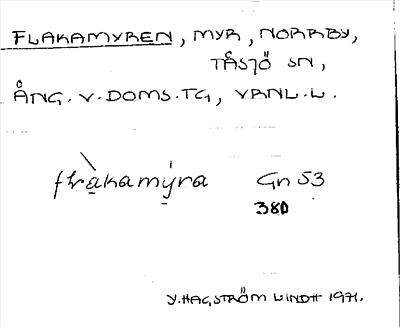 FLAKAMYREN, MYR, NORRBY,
TÅSJÖ SN,
ÅNG. V. DOMS. TG, VRNL. L.
flàkamýra Gn 53
380
Y. HAGSTRÖM LINDH 1971.